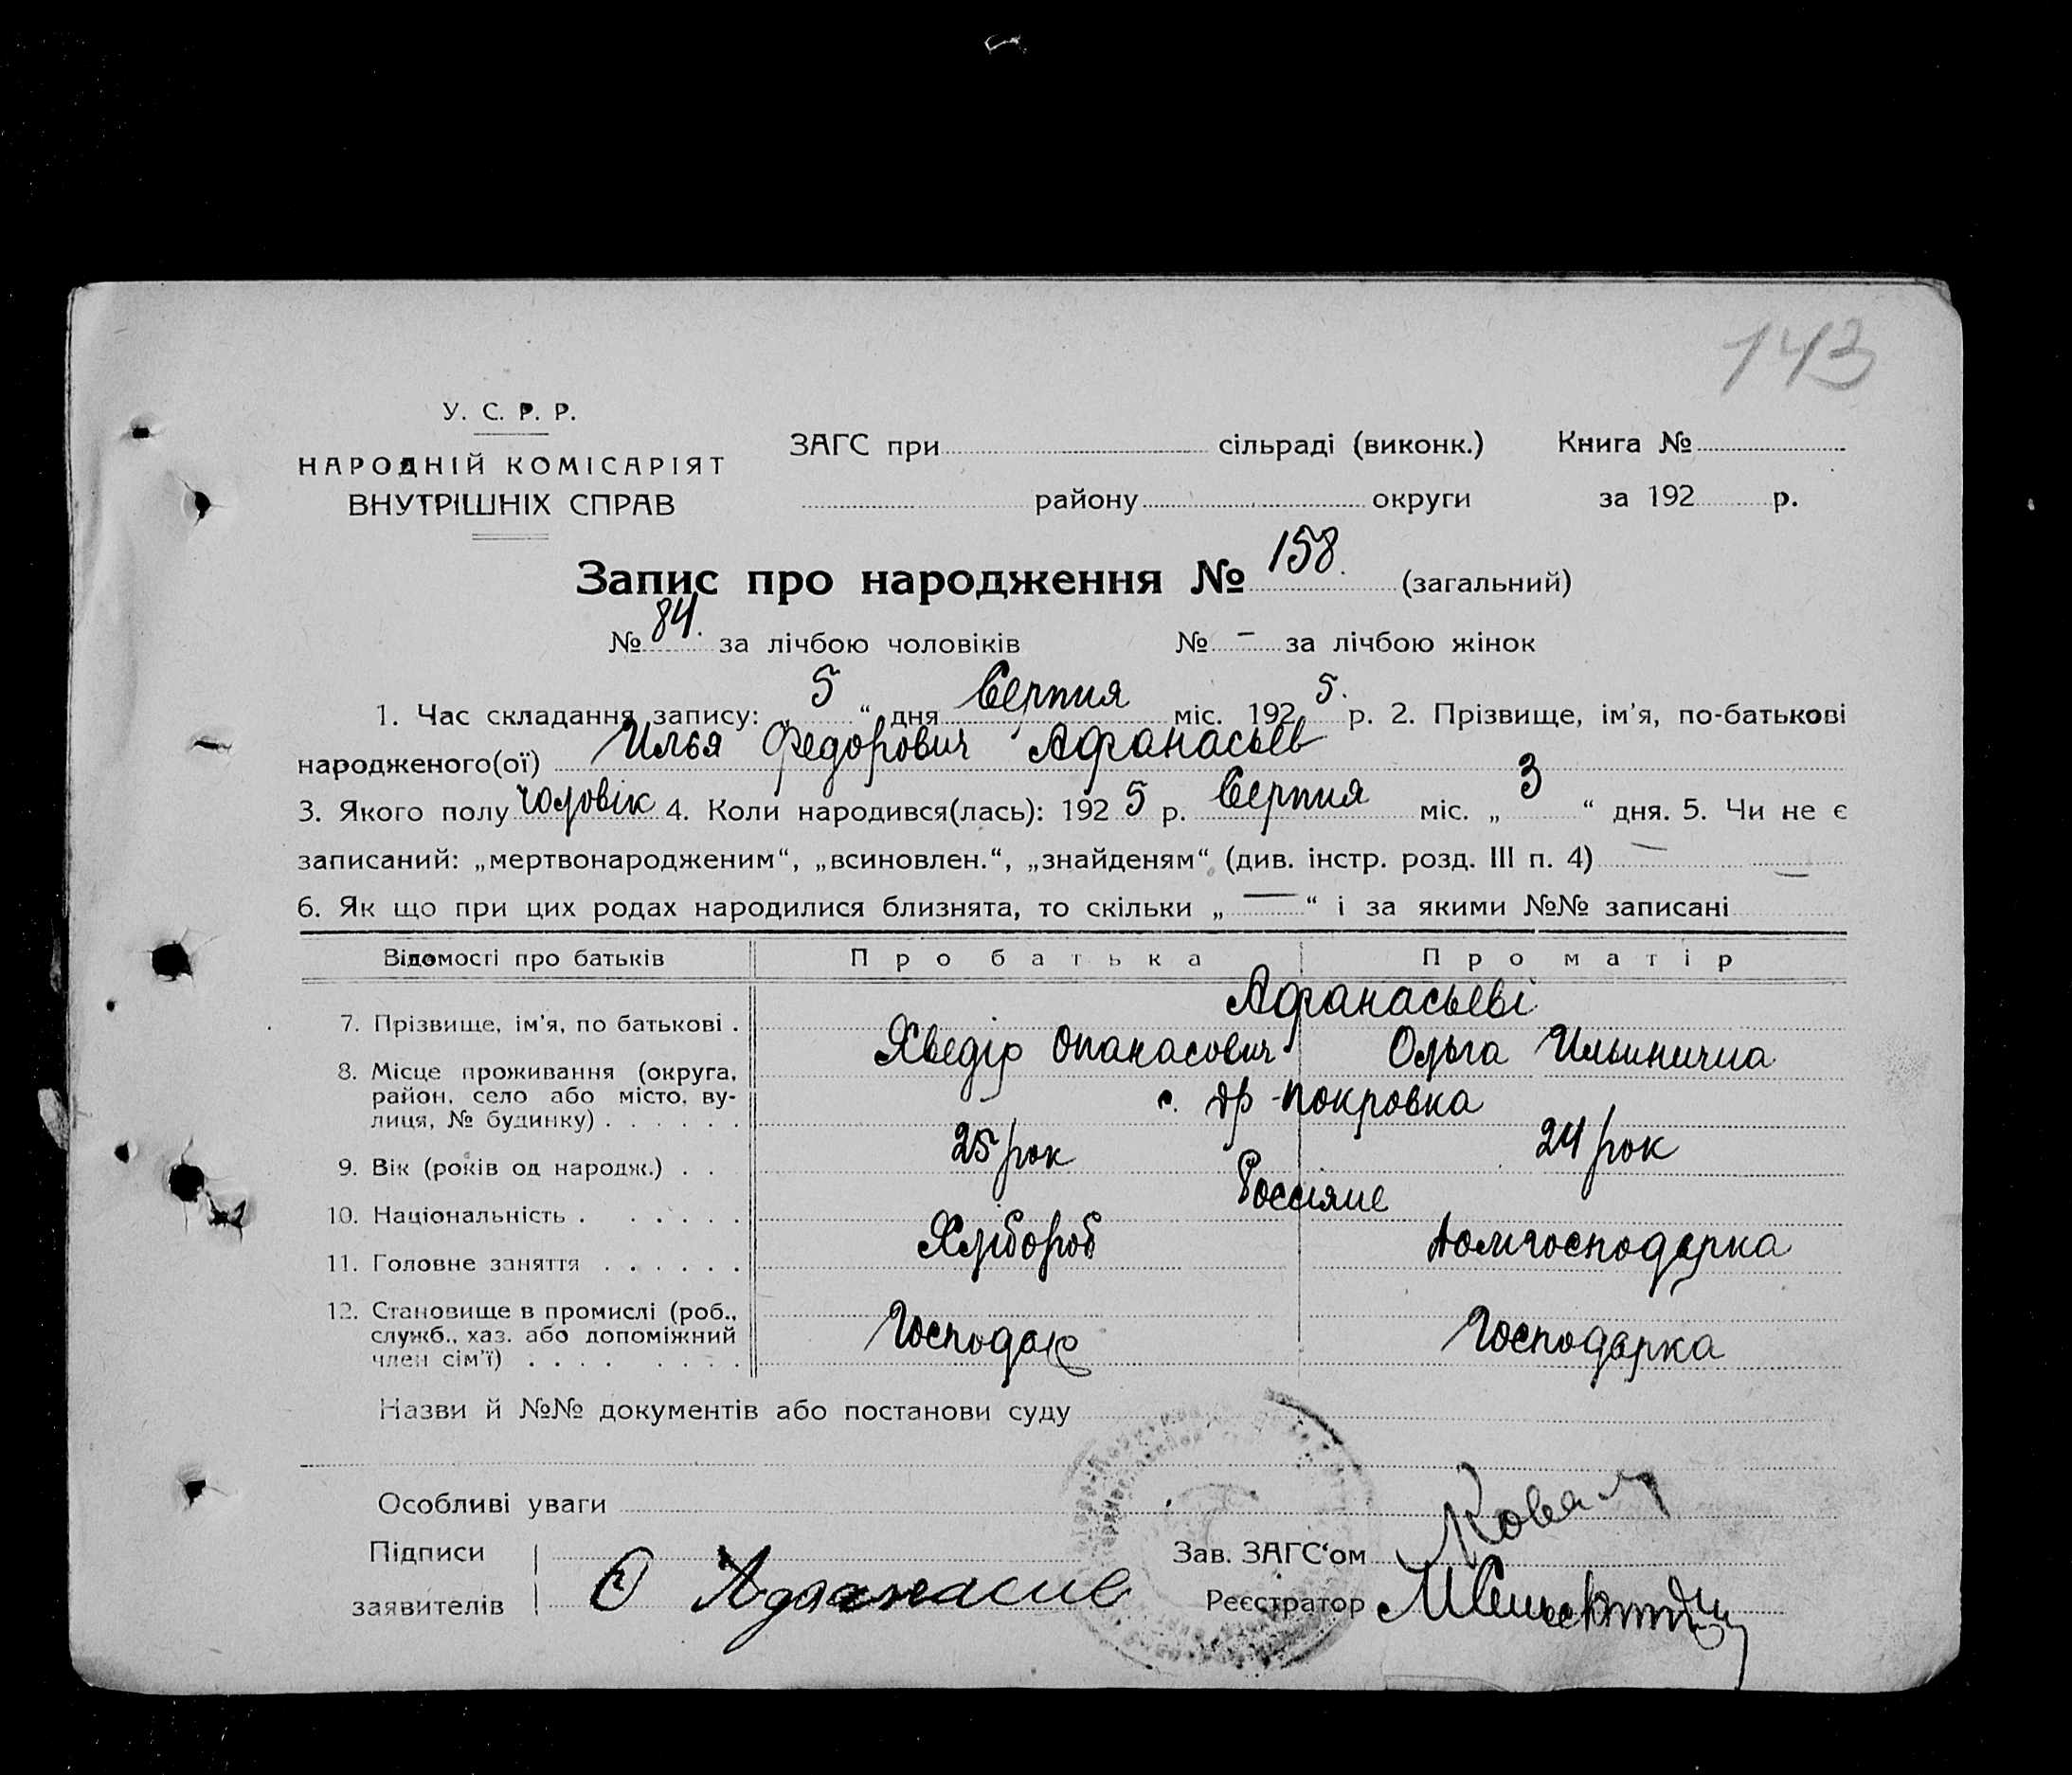 143
У. С. Р. Р.
НАРОДНІЙ КОМІСАРІЯТ
ВНУТРІШНІХ СПРАВ
ЗАГС при сільраді (виконк.) Книга №
району округи за 192 р.
Запис про народження № 158. (загальний)
№ 84. за лічбою чоловіків № – за лічбою жінок
1. Час складання запису: „ 5 “ дня Серпня міс. 192 5. р. 2. Прізвище, ім'я, по-батькові
народженого(ої) Илья Федорович Афанасьев
3. Якого полу чоловік 4. Коли народився(лась): 192 5 р. Серпня міс. „ 3 “ дня. 5. Чи не є
записаний: „мертвонародженим“, „всиновлен.“, „знайденям“ (див. інстр. розд. III п. 4) — —
6. Як що при цих родах народилися близнята, то скільки „ — “ і за якими №№ записані
Відомості про батьків Про батька Про матір
Афанасьеві
7. Прізвище, ім'я, по батькові . Хведір Опанасович Ольга Ильинична
8. Місце проживання (округа, район, село або місто, вулиця, № будинку) . . . . . . с. Др-Покровка
9. Вік (років од народж.) . . 25 рок 24 рок
10. Національність . . . . . . Россіяне
11. Головне заняття . . . . . . Хлібороб Домгосподарка
12. Становище в промислі (роб., служб., хаз. або допоміжний член сім'ї) . . . . . . . . Господар Господарка
Назви й №№ документів або постанови суду
Особливі уваги
Підписи
заявителів
Зав. ЗАГС‘ом
Реєстратор